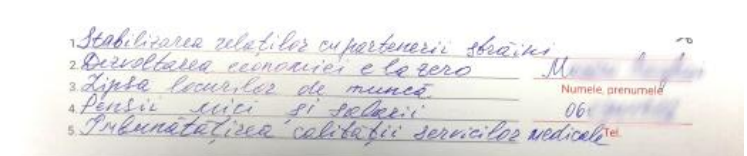 1. Stabilizarea relațiilor cu partenerii străini
2. Dezvoltarea economiei e la zero
3. Lipsa locurilor de muncă
Numele, prenumele
4. Pensii mici și salarii
06
5. Îmbunătățirea calității serviciilor medicale Tel.